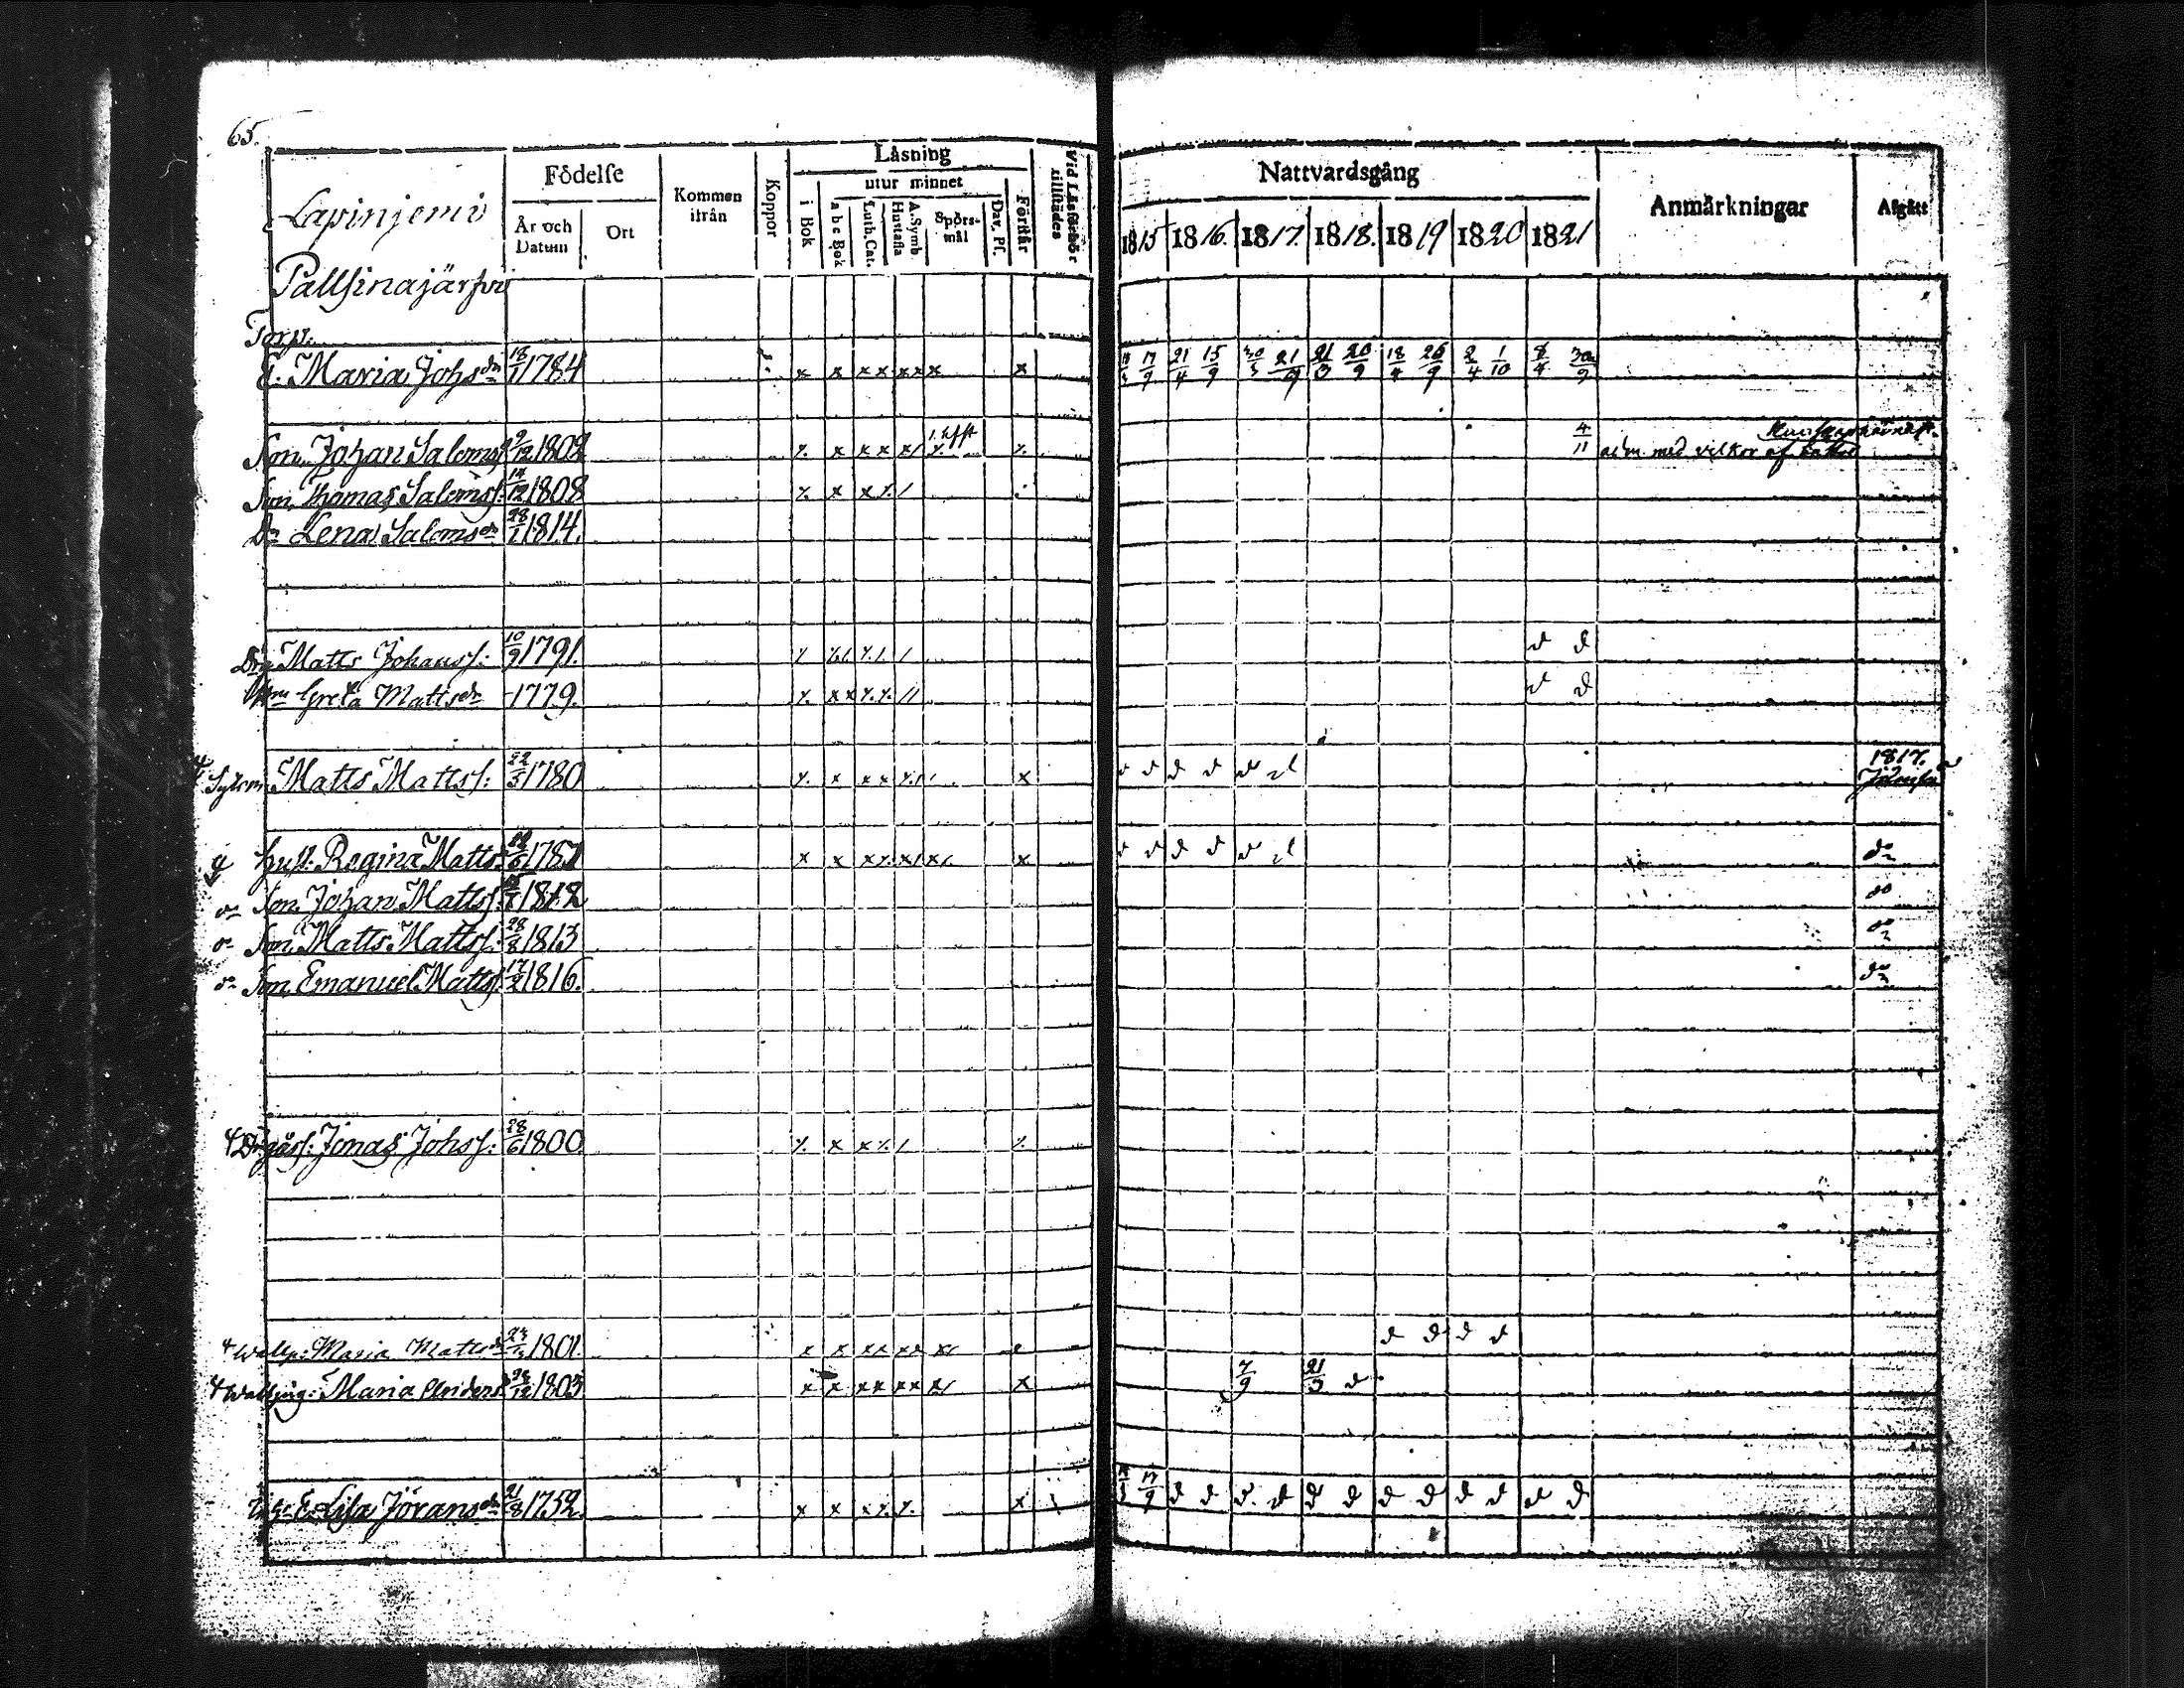 65.
Lapinjemi
Pallsinajärfvi
Födelse
År och Datum
Ort
Kommen ifrån
Koppor
Läsning
i Bok
utur minnet
a b c Bok
Luth. Cat.
A. Symb. Hustafla
Spörsmål
Dav. Ps.
Förstår
Vid Läsförhör tillstädes
Nattvardsgång
1815 1816. 1817. 1818. 1819 1820 1821
Anmärkningar
Afgått
Torp.
E. Maria Johsdr 18/1 1784 x x x x x x x x 17/9 21/4 15/9 30/3 21/9 21/3 20/9 18/4 26/9 2/4 1/10 8/4 30/9
Son. Johan Saloms. 9/12 1802 4/11 adm. med vilkor af
Son. Thomas Saloms. 14/12 1808
Dr Lena Salomsdr 28/1 1814.
Drg Matts Johanss: 10/9 1791. d d
Greta Mattsdr 1779. d d
Sytnm. Matts Mattss: 22/3 1780 d d d d d d 1817.
Hust. Regina Matts. 1781 d d d d d d do
Son. Johan Mattss. 1812 do
Son. Matts Mattss. 28/8 1813 do
Son. Emanuel Mattss. 17/2 1816. do
Drgåss: Jonas Johss: 28/6 1800.
Wallp: Maria Mattsdr 1801. d d d d
Wallpig: Maria Anders 24/12 1803 7/9 21/3 d
E. Lisa Jöransdr 21/8 1752. 17/9 d d d. d d d d d d d d d